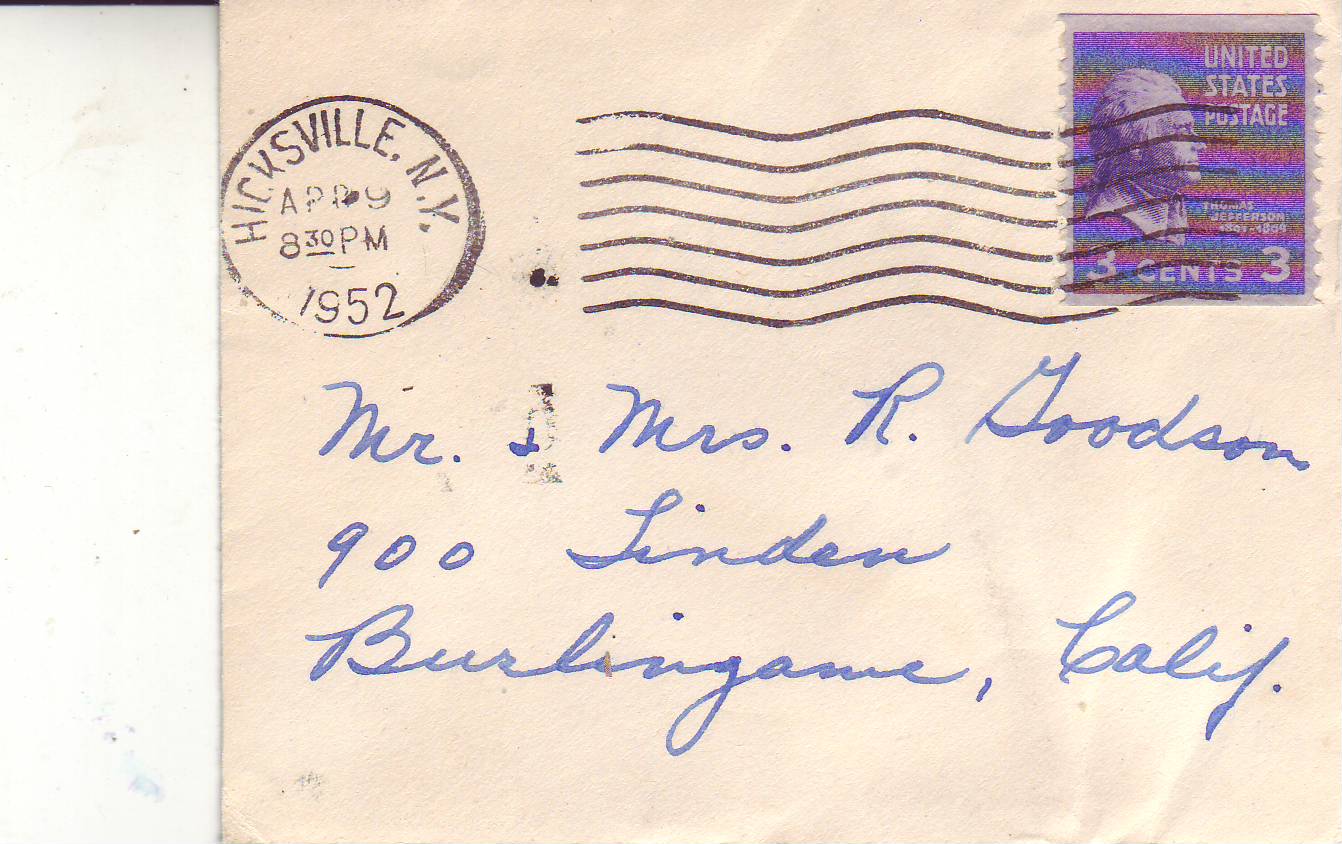 HICKSVILLE, N.Y.
APR 9
8 30 PM
1952
UNITED
STATES
POSTAGE
THOMAS
JEFFERSON
1801-1809
3 CENTS 3
Mr. & Mrs. R. Goodson
900 Linden
Burlingame, Calif.